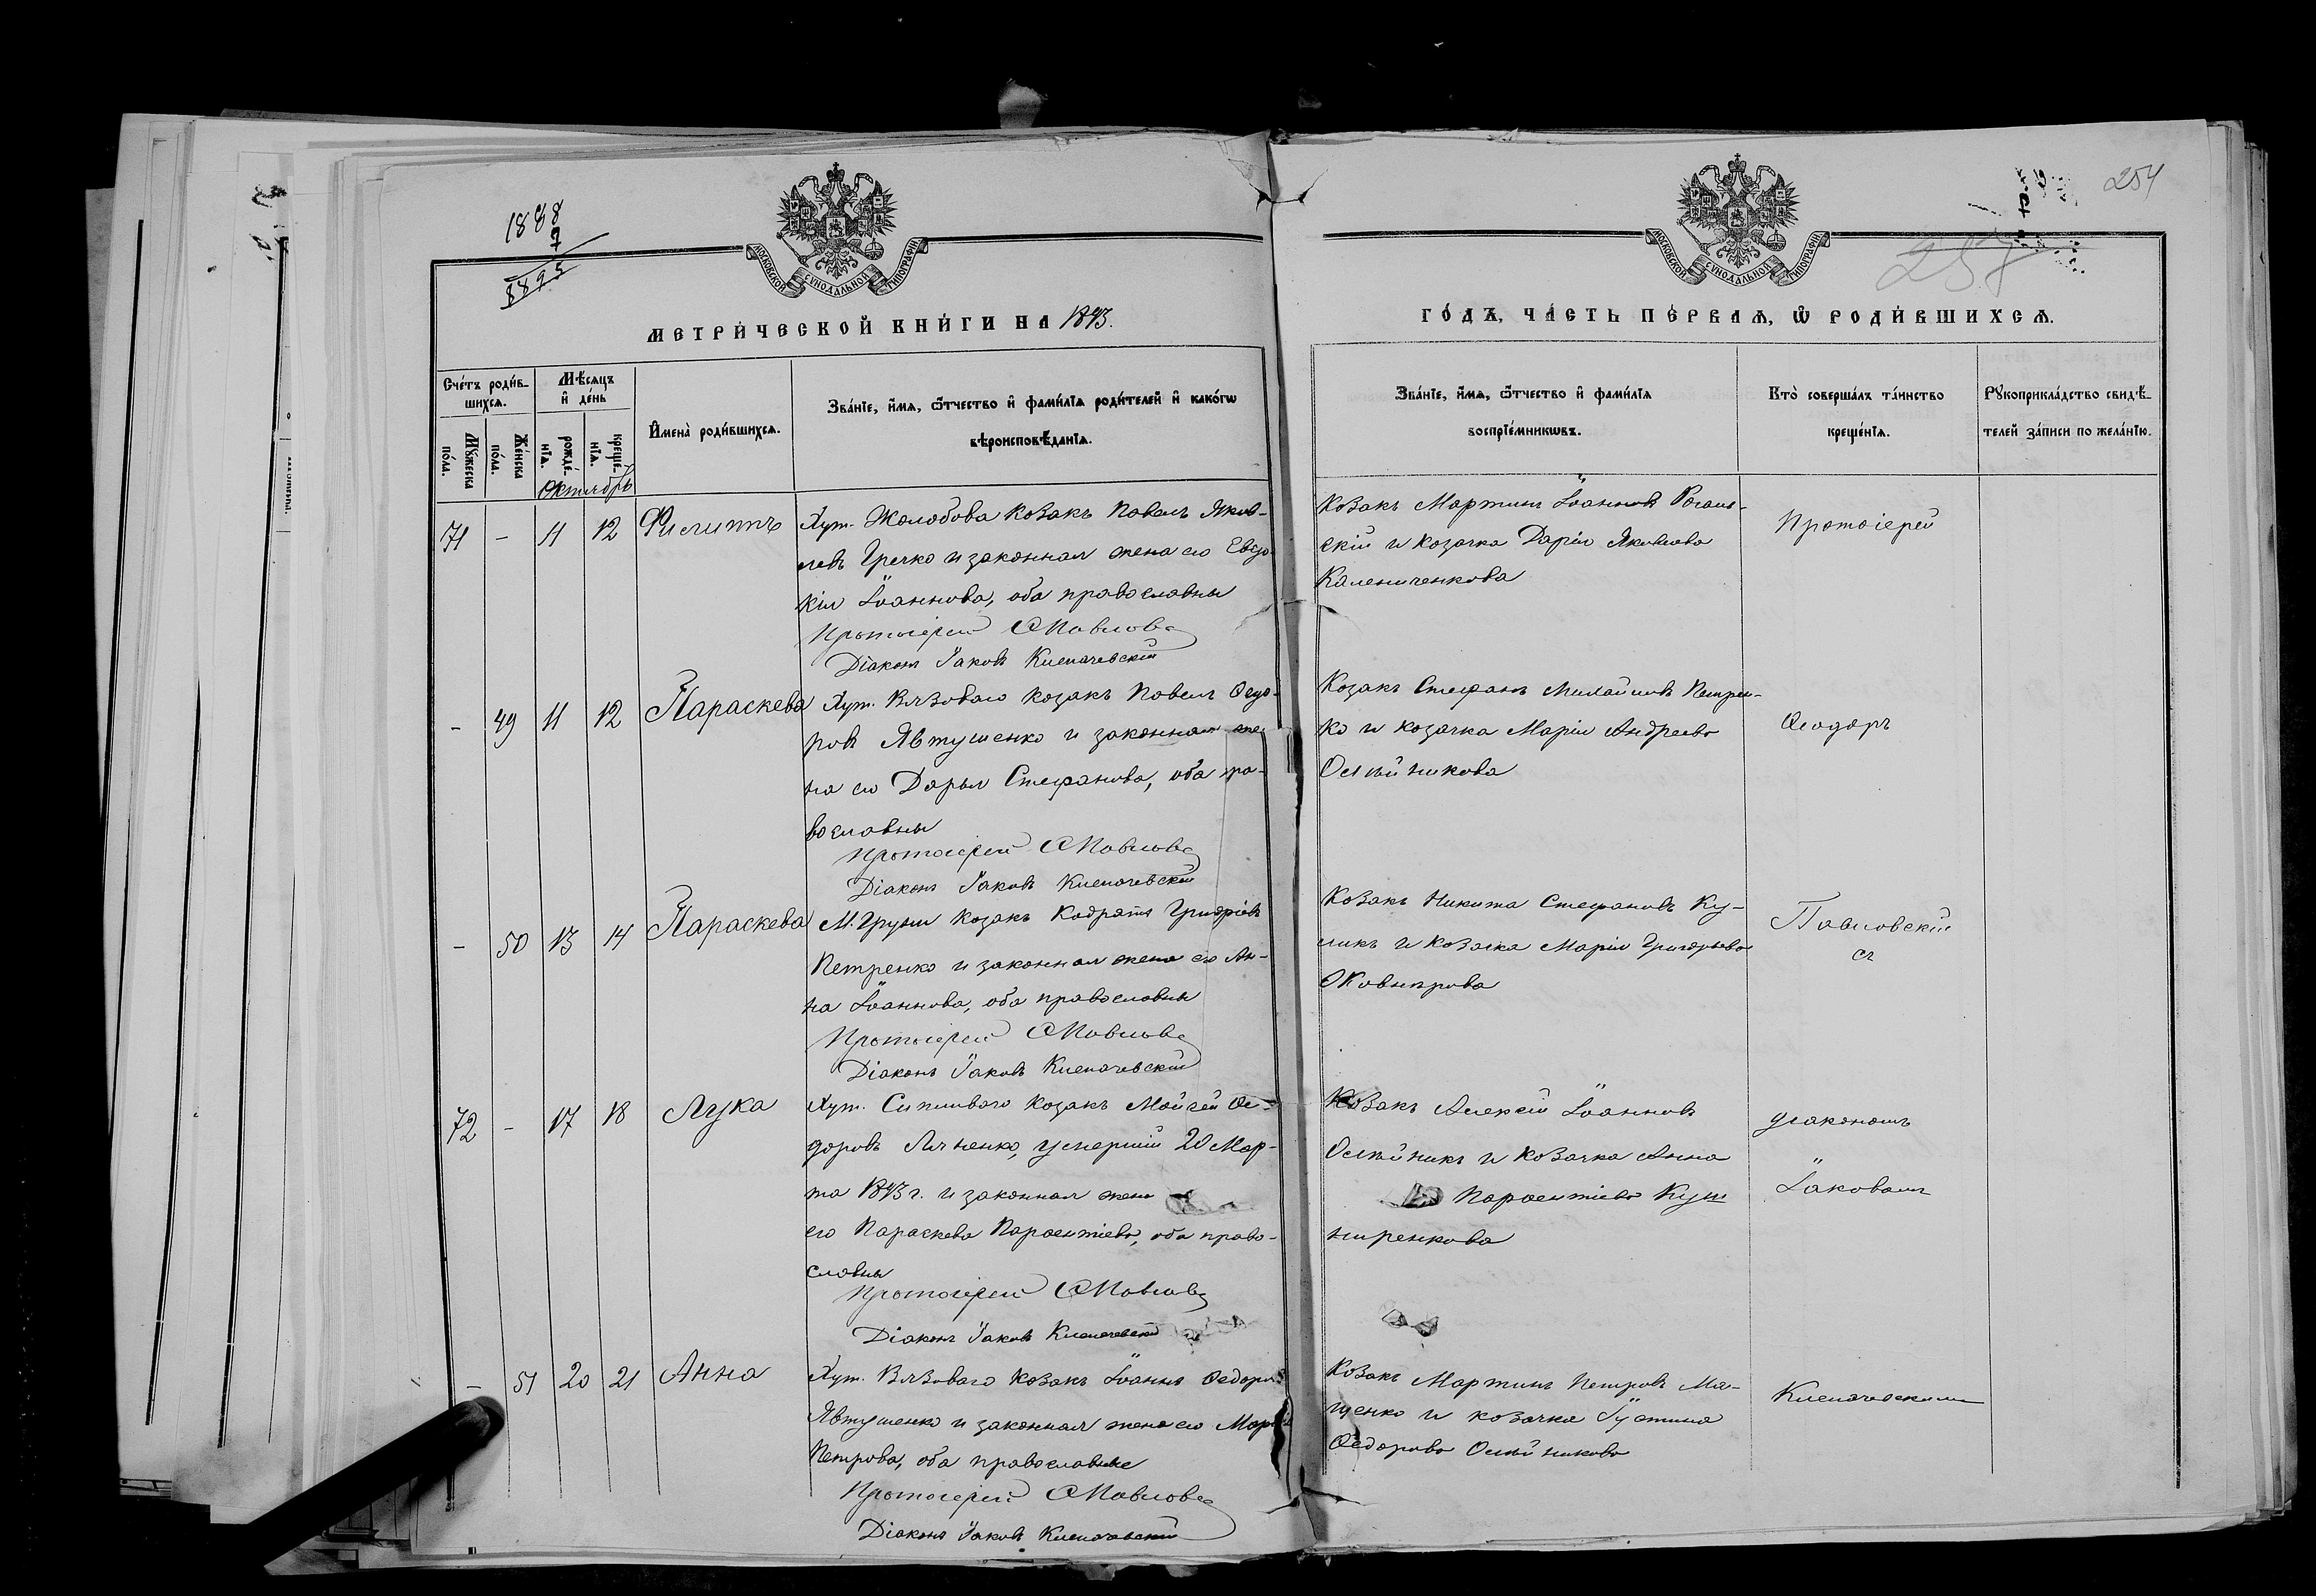 1888
7
8895
МОСКОВСКОЙ СѴНОДАЛЬНОЙ ТИПОГРАФІИ
МЕТРИ́ЧЕСКОЙ КНИ́ГИ НА 1893.
Сче́тъ роди́в-
шихсѧ.
Мѣ́сѧцъ
и҆ де́нь
И҆мена̀ роди́вшихсѧ.
Зва́нїе, и҆́мѧ, ѻ҆́тчество и҆ фами́лїѧ роди́телей и҆ како́гѡ
вѣроисповѣ́данїѧ.
Мꙋ́жеска
по́ла.
Же́нска
по́ла.
рожде́-
нїѧ.
креще́-
нїѧ.
Октябрь
71 - 11 12 Филиппъ
Хут. Жолобова козакъ Павелъ Яков-
левъ Гречко и законная жена его Евдо-
кія Іоаннова, оба православны
Протоіерей Ѳ Павловс
Діаконъ Іаковъ Клепачевскій
- 49 11 12 Параскева
Хут. Вязоваго козакъ Павелъ Ѳедо-
ровъ Явтушенко и законная же-
на его Дарья Стефанова, оба пра-
вославны
Протоіерей Ѳ Павловс
Діаконъ Іаковъ Клепачевскій
- 50 13 14 Параскева
М. Груни козакъ Кодратъ Григоріевъ
Петренко и законная жена его Ан-
на Іоаннова, оба православны
Протоіерей Ѳ Павловс
Діаконъ Іаковъ Клепачевскій
72 - 17 18 Лука
Хут. Сипливаго козакъ Мойсей Ѳе-
доровъ умершій 20 Мар-
та 1893 г. и законная жена
его Параскева Пароентіева, оба право-
славны
Протоіерей Ѳ Павловс
Діаконъ Іаковъ Клепачевскій
- 51 20 21 Анна
Хут. Вязоваго козакъ Іоаннъ Ѳедоровъ
Явтушенко и законная жена его Марія
Петрова, оба православные
Протоіерей Ѳ Павловс
Діаконъ Іаковъ Клепачевскій
254
257
МОСКОВСКОЙ СѴНОДАЛЬНОЙ ТИПОГРАФІИ
ГО́ДЪ, ЧА́СТЬ ПЕ́РВАѦ, Ѽ РОДИ́ВШИХСѦ.
Зва́нїе, и҆́мѧ, ѻ҆́тчество и҆ фами́лїѧ
воспрїе́мникѡвъ.
Кто̀ соверша́лъ та́инство
креще́нїѧ.
Рꙋкоприкла́дство свидѣ́-
телей за́писи по жела́нїю.
Козакъ Мартинъ Іоанновъ Рогаль-
скій и козачка Дарія Яковлева
Калениченкова
Протоіерей
Козакъ Стефанъ Михайловъ Петрен-
ко и козачка Марія Андреева
Олѣйникова
Ѳеодоръ
Козакъ Никита Стефановъ Ку-
ликъ и козачка Марія Григорьева
Павловскій
съ
Козакъ Алексій Іоанновъ
Олѣйникъ и козачка Анна
Пароентіева Куш
ниренкова
діакономъ
Іаковомъ
Козакъ Мартинъ Петровъ Ма-
щенко и козачка Іустина
Ѳедорова Олѣйникова
Клепачевскимъ